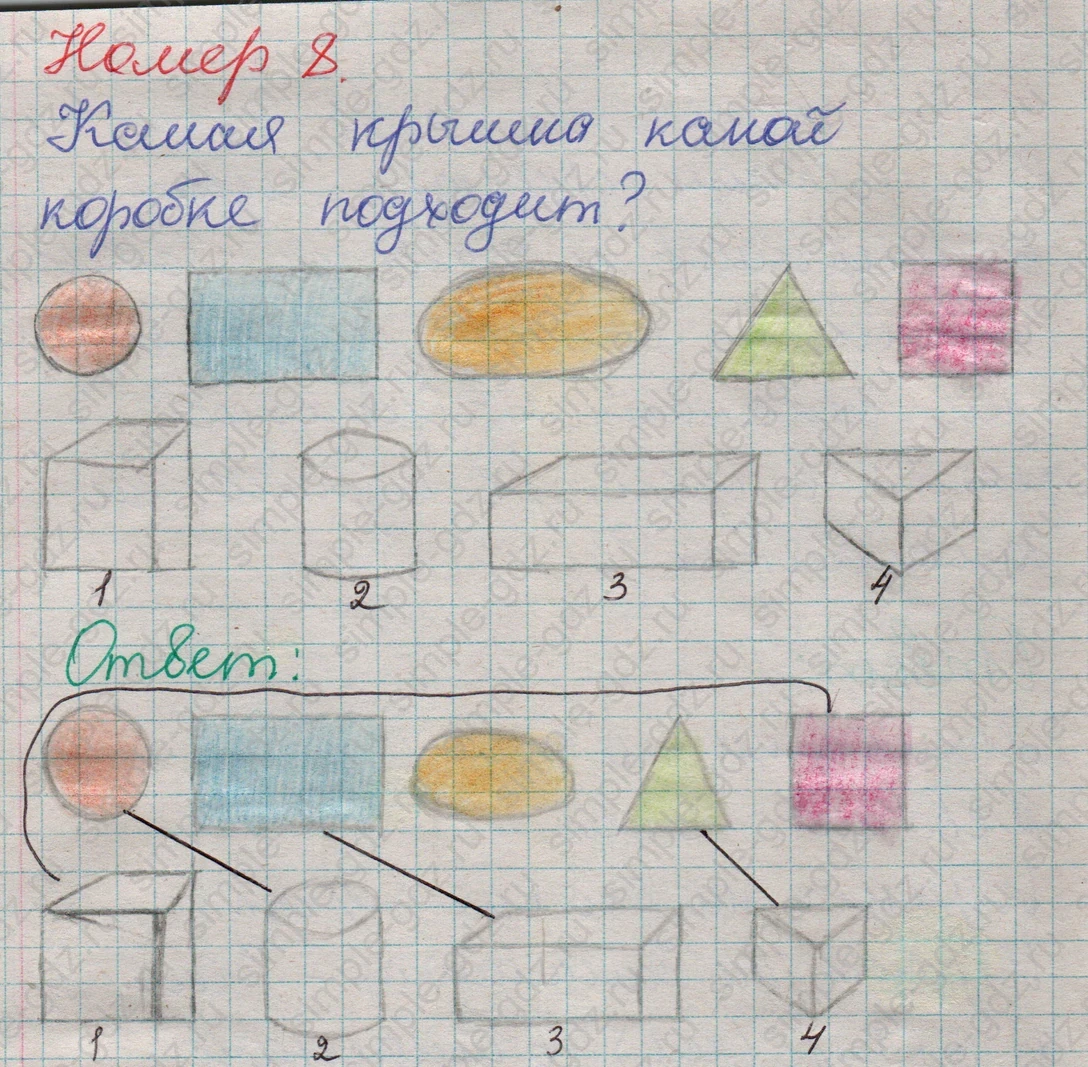 Номер 8.
Какая крышка какой
коробке подходит?
1 2 3 4
Ответ:
1 2 3 4